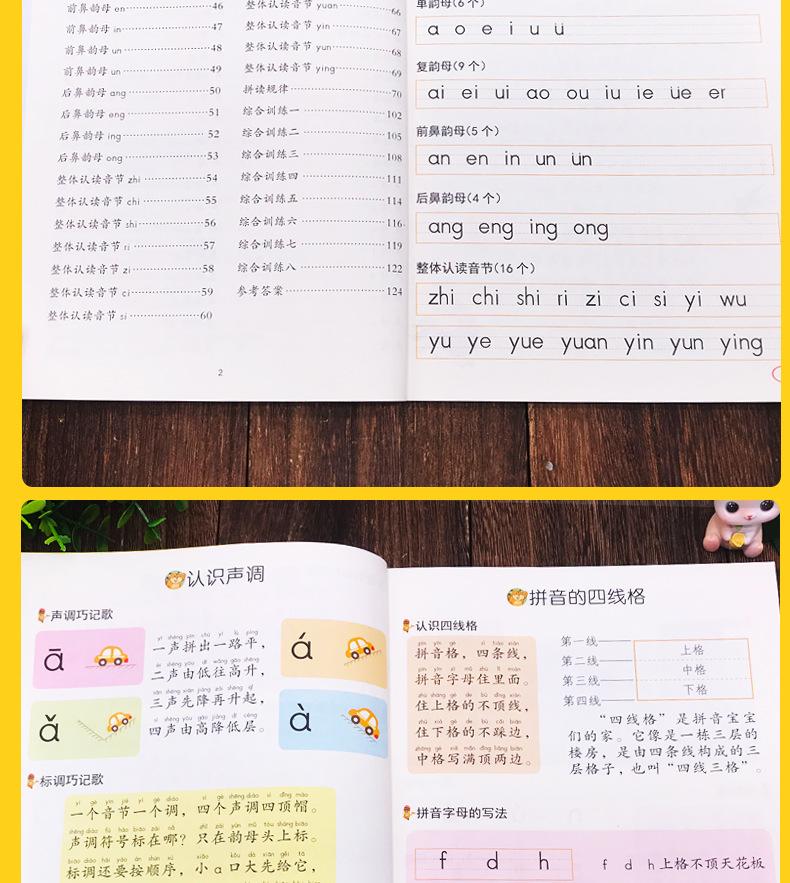 前鼻韵母 en 46
前鼻韵母 in 47
前鼻韵母 un 48
前鼻韵母 ün 49
后鼻韵母 ang 50
后鼻韵母 eng 51
后鼻韵母 ing 52
后鼻韵母 ong 53
整体认读音节 zhi 54
整体认读音节 chi 55
整体认读音节 shi 56
整体认读音节 ri 57
整体认读音节 zi 58
整体认读音节 ci 59
整体认读音节 si 60
2
整体认读音节 yuan 66
整体认读音节 yin 67
整体认读音节 yun 68
整体认读音节 ying 69
拼读规律 70
综合训练一 102
综合训练二 105
综合训练三 108
综合训练四 111
综合训练五 114
综合训练六 116
综合训练七 119
综合训练八 122
参考答案 124
单韵母(6个)
a o e i u ü
复韵母(9个)
ai ei ui ao ou iu ie üe er
前鼻韵母(5个)
an en in un ün
后鼻韵母(4个)
ang eng ing ong
整体认读音节(16个)
zhi chi shi ri zi ci si yi wu
yu ye yue yuan yin yun ying
认识声调
声调巧记歌
ā
á
ǎ
à
一声拼出一路平，
二声由低往高升，
三声先降再升起，
四声由高降低层。
标调巧记歌
一个音节一个调，四个声调四顶帽。
声调符号标在哪？只在韵母头上标。
标调还要按顺序，小ɑ口大先给它，
拼音的四线格
认识四线格
拼音格，四条线，
拼音字母住里面。
住上格的不顶线，
住下格的不踩边，
中格写满顶两边。
第一线
第二线
第三线
第四线
上格
中格
下格
“四线格”是拼音宝宝
们的家。它像是一栋三层的
楼房，是由四条线构成的三
层格子，也叫“四线三格”。
拼音字母的写法
f d h
f d h上格不顶天花板